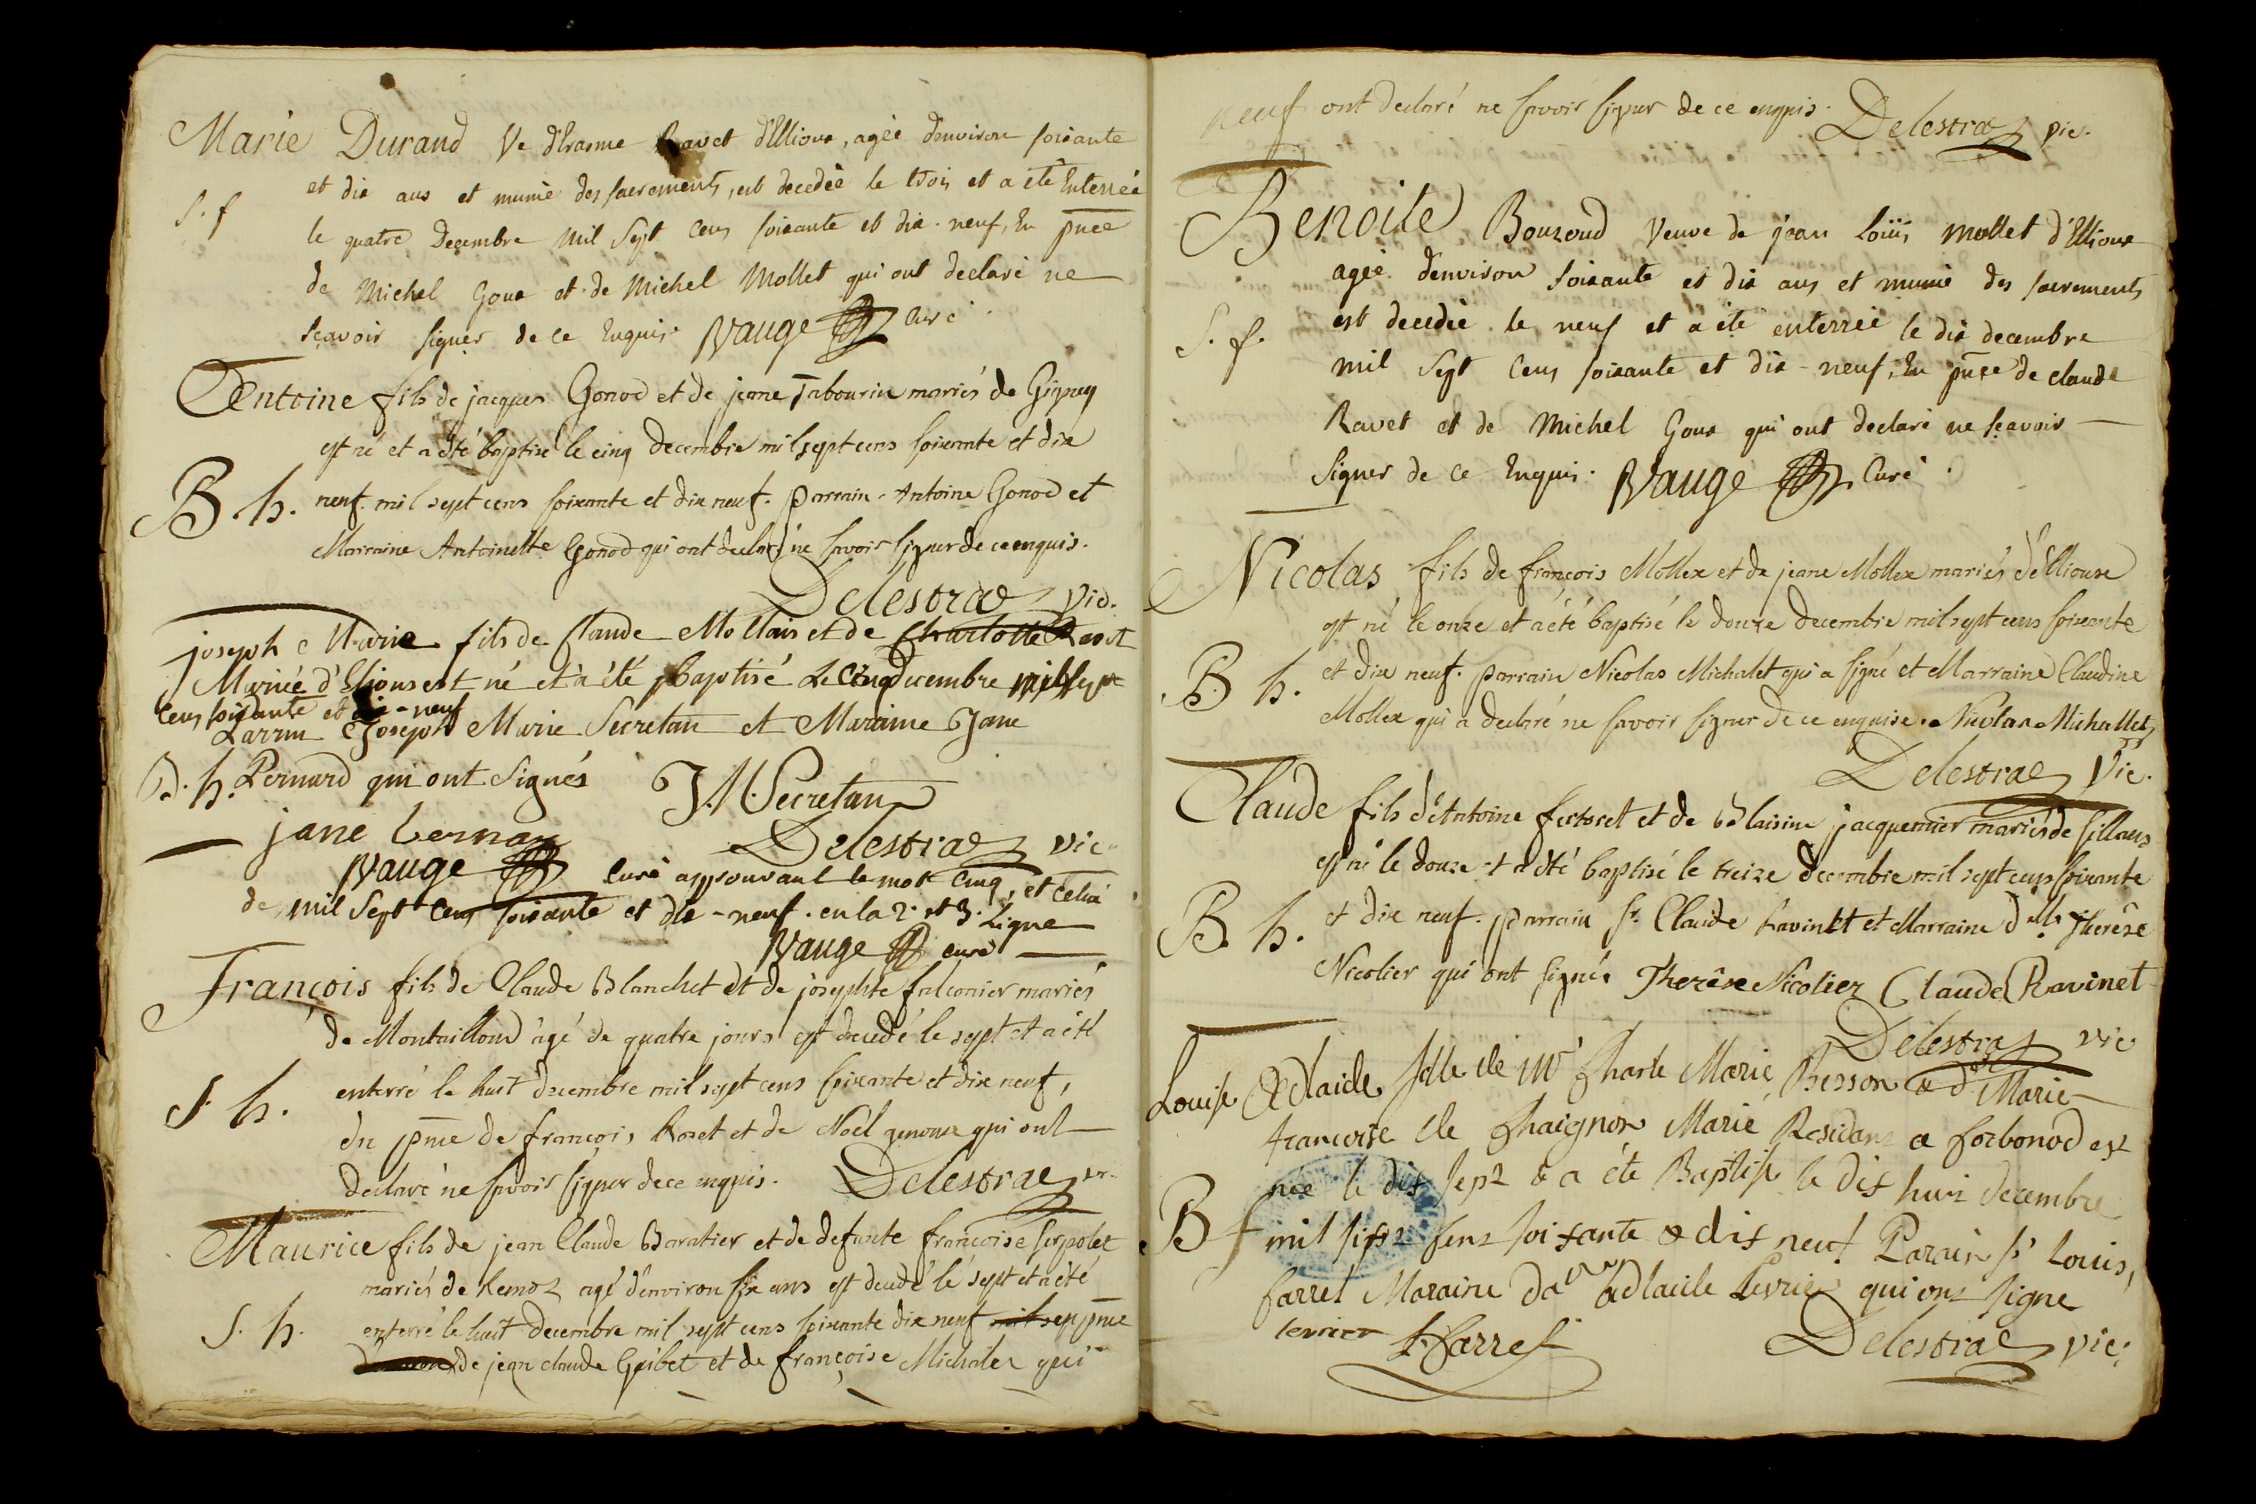 Marie Durand Ve d'Erasme Ravet d'Ellioux, agée d'environ soixante
et dix ans et munie des sacrements, est decedée le trois et a été Enterrée
S. f
le quatre Decembre Mil Sept Cens soixante et dix-neuf, En pnce
de Michel Goux et de Michel Mollet qui ont declaré ne
sçavoir signer de ce Enquis. Vauge Curé
Antoine fils de jacques Gonod et de jeane Tabourin mariés de Gigney
est né et a été baptisé le cinq decembre mil sept cens soixante et dix
B. h.
neuf. mil sept cens soixante et dix neuf. parrain Antoine Gonod et
Marraine Antoinette Gonod qui ont declaré ne savoir signer de ce enquis.
Delestraz vic.
joseph Marie fils de Claude Mollais et de Charlotte Ravet
Mariée d'Elioux est né et à été Baptisé Le Cinq decembre mil sept
Cens soixante et dix-neuf
Parrin Joseph Marie Secretan et Maraine Jane
B. h. Pernard qui ont Signés J. M. Secretan
jane bernar Delestraz vic.
Vauge Curé approuvant le mot Cinq, et celui
de mil Sept Cens soixante et dix-neuf. en la 2. et 3. Ligne
Vauge curé
François fils de Claude Blanchet et de josephte falconier mariés
de Montaillou âgé de quatre jours est decedé le sept et a été
S. h.
enterré le huit decembre mil sept cens soixante et dix neuf,
En pnce de françois Roset et de Noël genoux qui ont
declaré ne savoir signer de ce enquis. Delestraz vic.
Maurice fils de jean Claude Baratier et de defunte françoise serpolet
mariés de Remoz agé d'environ six ans est decedé le sept et a été
S. h.
enterré le huit decembre mil sept cens soixante dix neuf mil sep pnce
de jean claude Guibet et de françoise Michalet qui
neuf ont declaré ne savoir signer de ce enquis. Delestraz vic.
Benoite Bouzoud Veuve de jean Loüis Mollet d'Ellioux
agée d'environ soixante et dix ans et munie des sacrements
S. f.
est decedée le neuf et a été enterrée le dix decembre
mil Sept Cens soixante et dix-neuf, En pnce de claude
Ravet et de Michel Goux qui ont declaré ne sçavoir
Signer de ce Enquis. Vauge Curé.
Nicolas fils de françois Mollex et de jeane Mollex mariés d'Elliouse
est né le onze et a été baptisé le douze decembre mil sept cens soixante
B. h.
et dix neuf. parrain Nicolas Michalet qui a signé et Marraine Claudine
Mollex qui a declaré ne savoir signer de ce enquise. Nicolas Michallet
Delestraz Vic.
Claude fils d'Antoine fectoret et de Blaisine jacquemier mariés de sillans
est né le douze et a été baptisé le treize decembre mil sept cens soixante
B. h.
et dix neuf. parrain sr. Claude Ravinet et Marraine dlle Therêse
Nicolier qui ont signés Therêse Nicolier Claude Ravinet
Delestraz vic
Louise Adlaide fille de Mr Charle Marie Besson & de Marie
francoise de Chaignon Marié Residans a Corbonod est
née le dix sept & a été Baptise le dix huit decembre
B f
mil sept sens soixante & dix neuf Parain sr Louis
farrel Maraine adlaide Levrier qui ont signe
levrier L. farrel Delestraz vic.